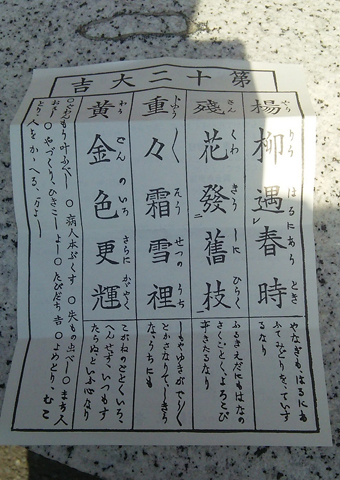 第十二大吉
楊柳遇春時
やなぎも、はるにあ
ふてみどりをていす
るなり
殘花發舊枝
ふるきえだにもはなの
さくごとく、よろこび
きたるなり
重々霜雪裡
かさなりて
うちにも
黄金色更輝
こがねのごとくいろ、
へんぜず、いつもす
たらぬといふ心なり
叶ふべし ○病人本ぷくす ○失もの出べし ○まち人
○やづくり、ひきこしよし ○たびだち吉 ○よめとり、むこ
とり、人をかゝへる、万よし